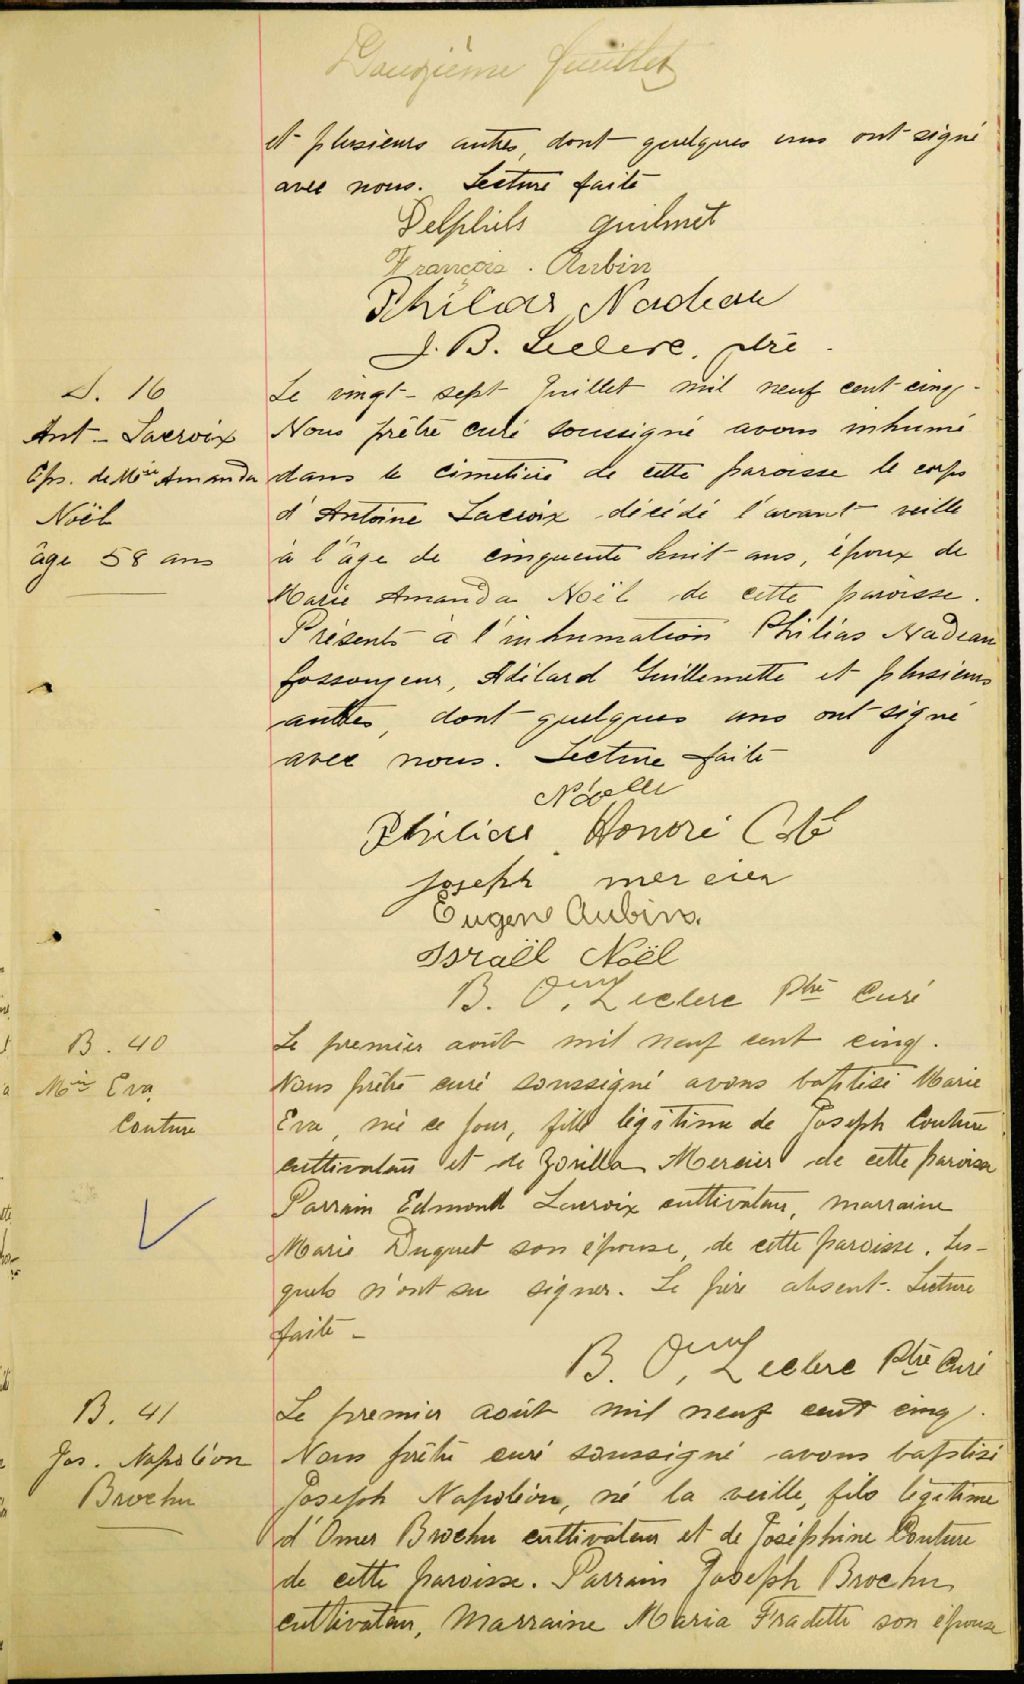 Douzième feuillet
et plusieurs autres, dont quelques uns ont signé
avec nous. Lecture faite
Delphils Guilmet
François Aubin
Philias Nadeau
J. B. Leclerc, ptre
S. 16
Ant - Lacroix
Eps. de Mie Amanda
Noël
âge 58 ans
Le vingt-sept Juillet mil neuf cent cinq.
Nous prêtre curé soussigné avons inhumé
dans le cimetière de cette paroisse le corps
d'Antoine Lacroix décédé l'avant veille
à l'âge de cinquante huit ans, époux de
Marie Amanda Noël de cette paroisse.
Présents à l'inhumation Philias Nadeau
fossoyeur, Adélard Guillemette et plusieurs
autres, dont quelques uns ont signé
avec nous. Lecture faite
Philias Honoré Coté
Joseph mercier
Eugene Aubin.
Israël Noël
B. O. Leclerc Ptre Curé
B. 40
Mie Eva
Couture
Le premier août mil neuf cent cinq.
Nous prêtre curé soussigné avons baptisé Marie
Eva, né ce jour, fille légitime de Joseph Couture
cultivateur et de Zorilla Mercier de cette paroisse
Parrain Edmond Lacroix cultivateur, marraine
Marie Duquet son épouse, de cette paroisse. Les-
quels n'ont su signer. Le père absent. Lecture
faite -
B. O. Leclerc Ptre Curé
B. 41
Jos. Napoléon
Brochu
Le premier août mil neuf cent cinq.
Nous prêtre curé soussigné avons baptisé
Joseph Napoléon, né la veille, fils légitime
d'Omer Brochu cultivateur et de Joséphine Couture
de cette paroisse. Parrain Joseph Brochu
cultivateur, Marraine Maria Fradette son épouse